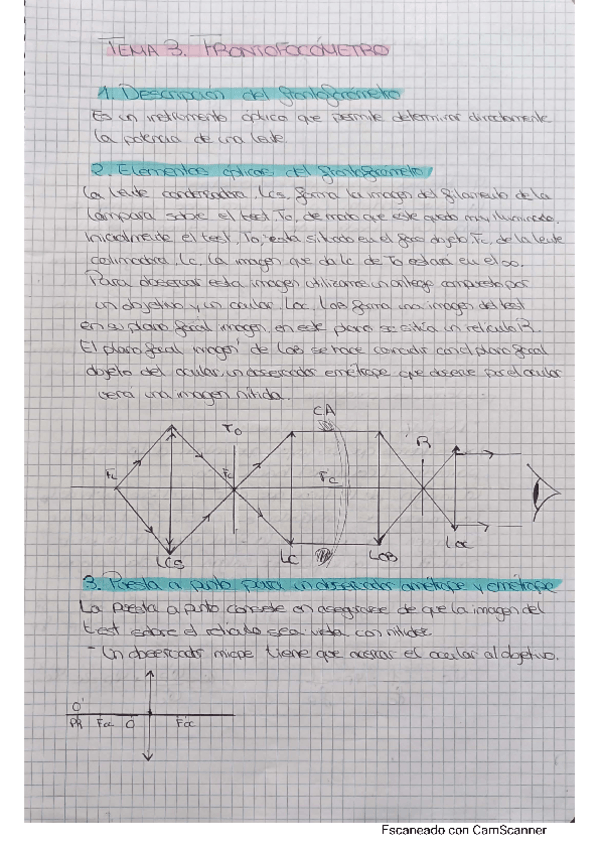 TEMA 3. FRONTOFOCÓMETRO
1. Descripción del frontofocómetro
Es un instrumento óptico que permite determinar directamente
la potencia de una lente.
2. Elementos ópticos del frontofocómetro
La lente condensadora, LCS, forma la imagen del filamento de la
lámpara sobre el test, To, de modo que este quede muy iluminado.
Inicialmente el test, To, está situado en el foco objeto, Fc, de la lente
colimadora, Lc. La imagen que da Lc de To estará en el ∞.
Para observar esta imagen utilizamos un anteojo compuesto por
un objetivo y un ocular, Loc. LOB forma una imagen del test
en su plano focal imagen, en este plano se sitúa un retículo R.
El plano focal imagen de LOB se hace coincidir con el plano focal
objeto del ocular, un observador emétrope que observe por el ocular
verá una imagen nítida.
CA
To
R
FL
Fc
Fc
LCS
LC
LOB
Loc
3. Puesta a punto para un observador amétrope y emétrope
La puesta a punto consiste en asegurarse de que la imagen del
test sobre el retículo sea vista con nitidez.
- Un observador miope tiene que acercar el ocular al objetivo.
O'
PR Foc O Foc
Escaneado con CamScanner